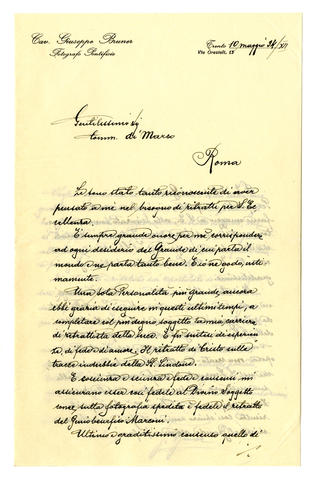 Cav. Giuseppe Bruner
Fotografo Pontificio
Trento 10 maggio 34/XII
Via Grazioli, 15
Gentilissimo Sig
Comm. di Marzo
Roma
Le sono stato tanto riconoscente di aver
pensato a me nel bisogno di ritratti per S. Ec
cellenza.
È sempre grande onore per me corrispondere
ad ogni desiderio del Grande di cui parla il
mondo e ne parla tanto bene. E io ne godo, inti
mamente.
Una sola Personalità più grande, ancora
ebbi grazia di eseguire in questi ultimi tempi, a
completare col più degno soggetto la mia carriera
di ritrattista della luce. E fu sintesi di esperien
za, di fede e di amore. Il ritratto di Cristo sulle
tracce indubbie della S. Sindone.
E coscienza e scienza e fede consensi mi
assicurano essere così fedele al Divino Soggetto
come sulla fotografia spedita è fedele il ritratto
del Genio benefico Marconi.
Ultimo e graditissimo consenso quello di